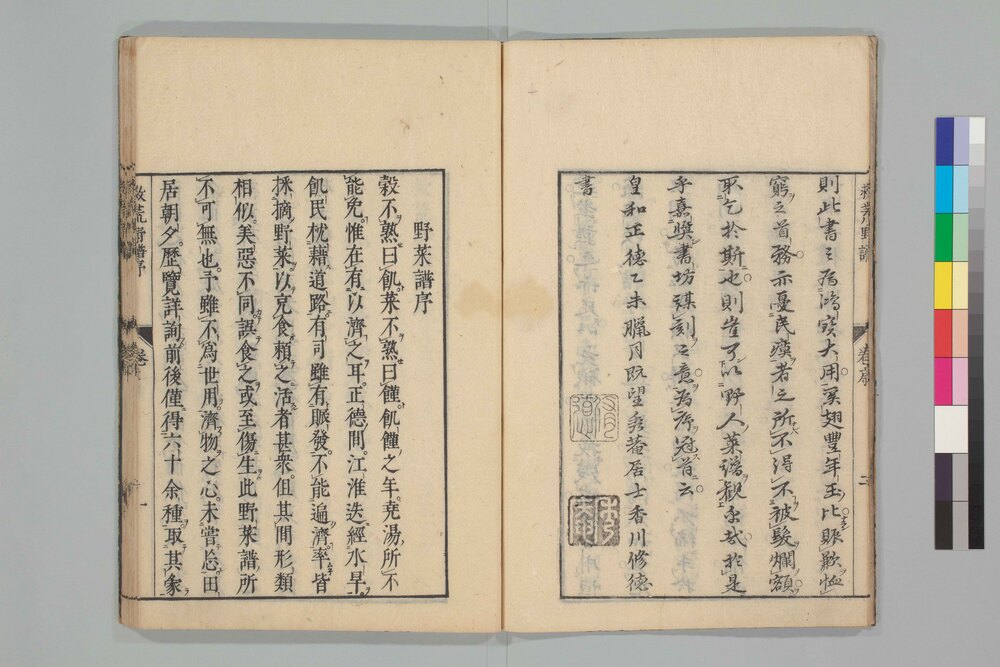 則此書之為鴻宝大用奚翅豊年玉比賑歉恤
窮之首務亦憂民瘼者之所不得不被髪爛額
取乞於斯也則豈可以野人菜譜観乎哉於是
乎嘉奬書坊謀刻之意為序冠首云
皇和正徳乙未臘月既望秀菴居士香川修徳
書
野菜譜序
穀不熟曰飢菜不熟曰饉飢饉之年堯湯所不
能免惟在有以濟之耳正德間江淮迭經水旱
飢民枕藉道路有司雖有賑發不能遍濟率皆
採摘野菜以充食賴之活者甚衆但其間形類
相似美惡不同誤食之或至傷生此野菜譜所
不可無也予雖不爲世用濟物之心未嘗忘田
居朝夕歷覽詳詢前後僅得六十余種取其象
救荒野譜序
一